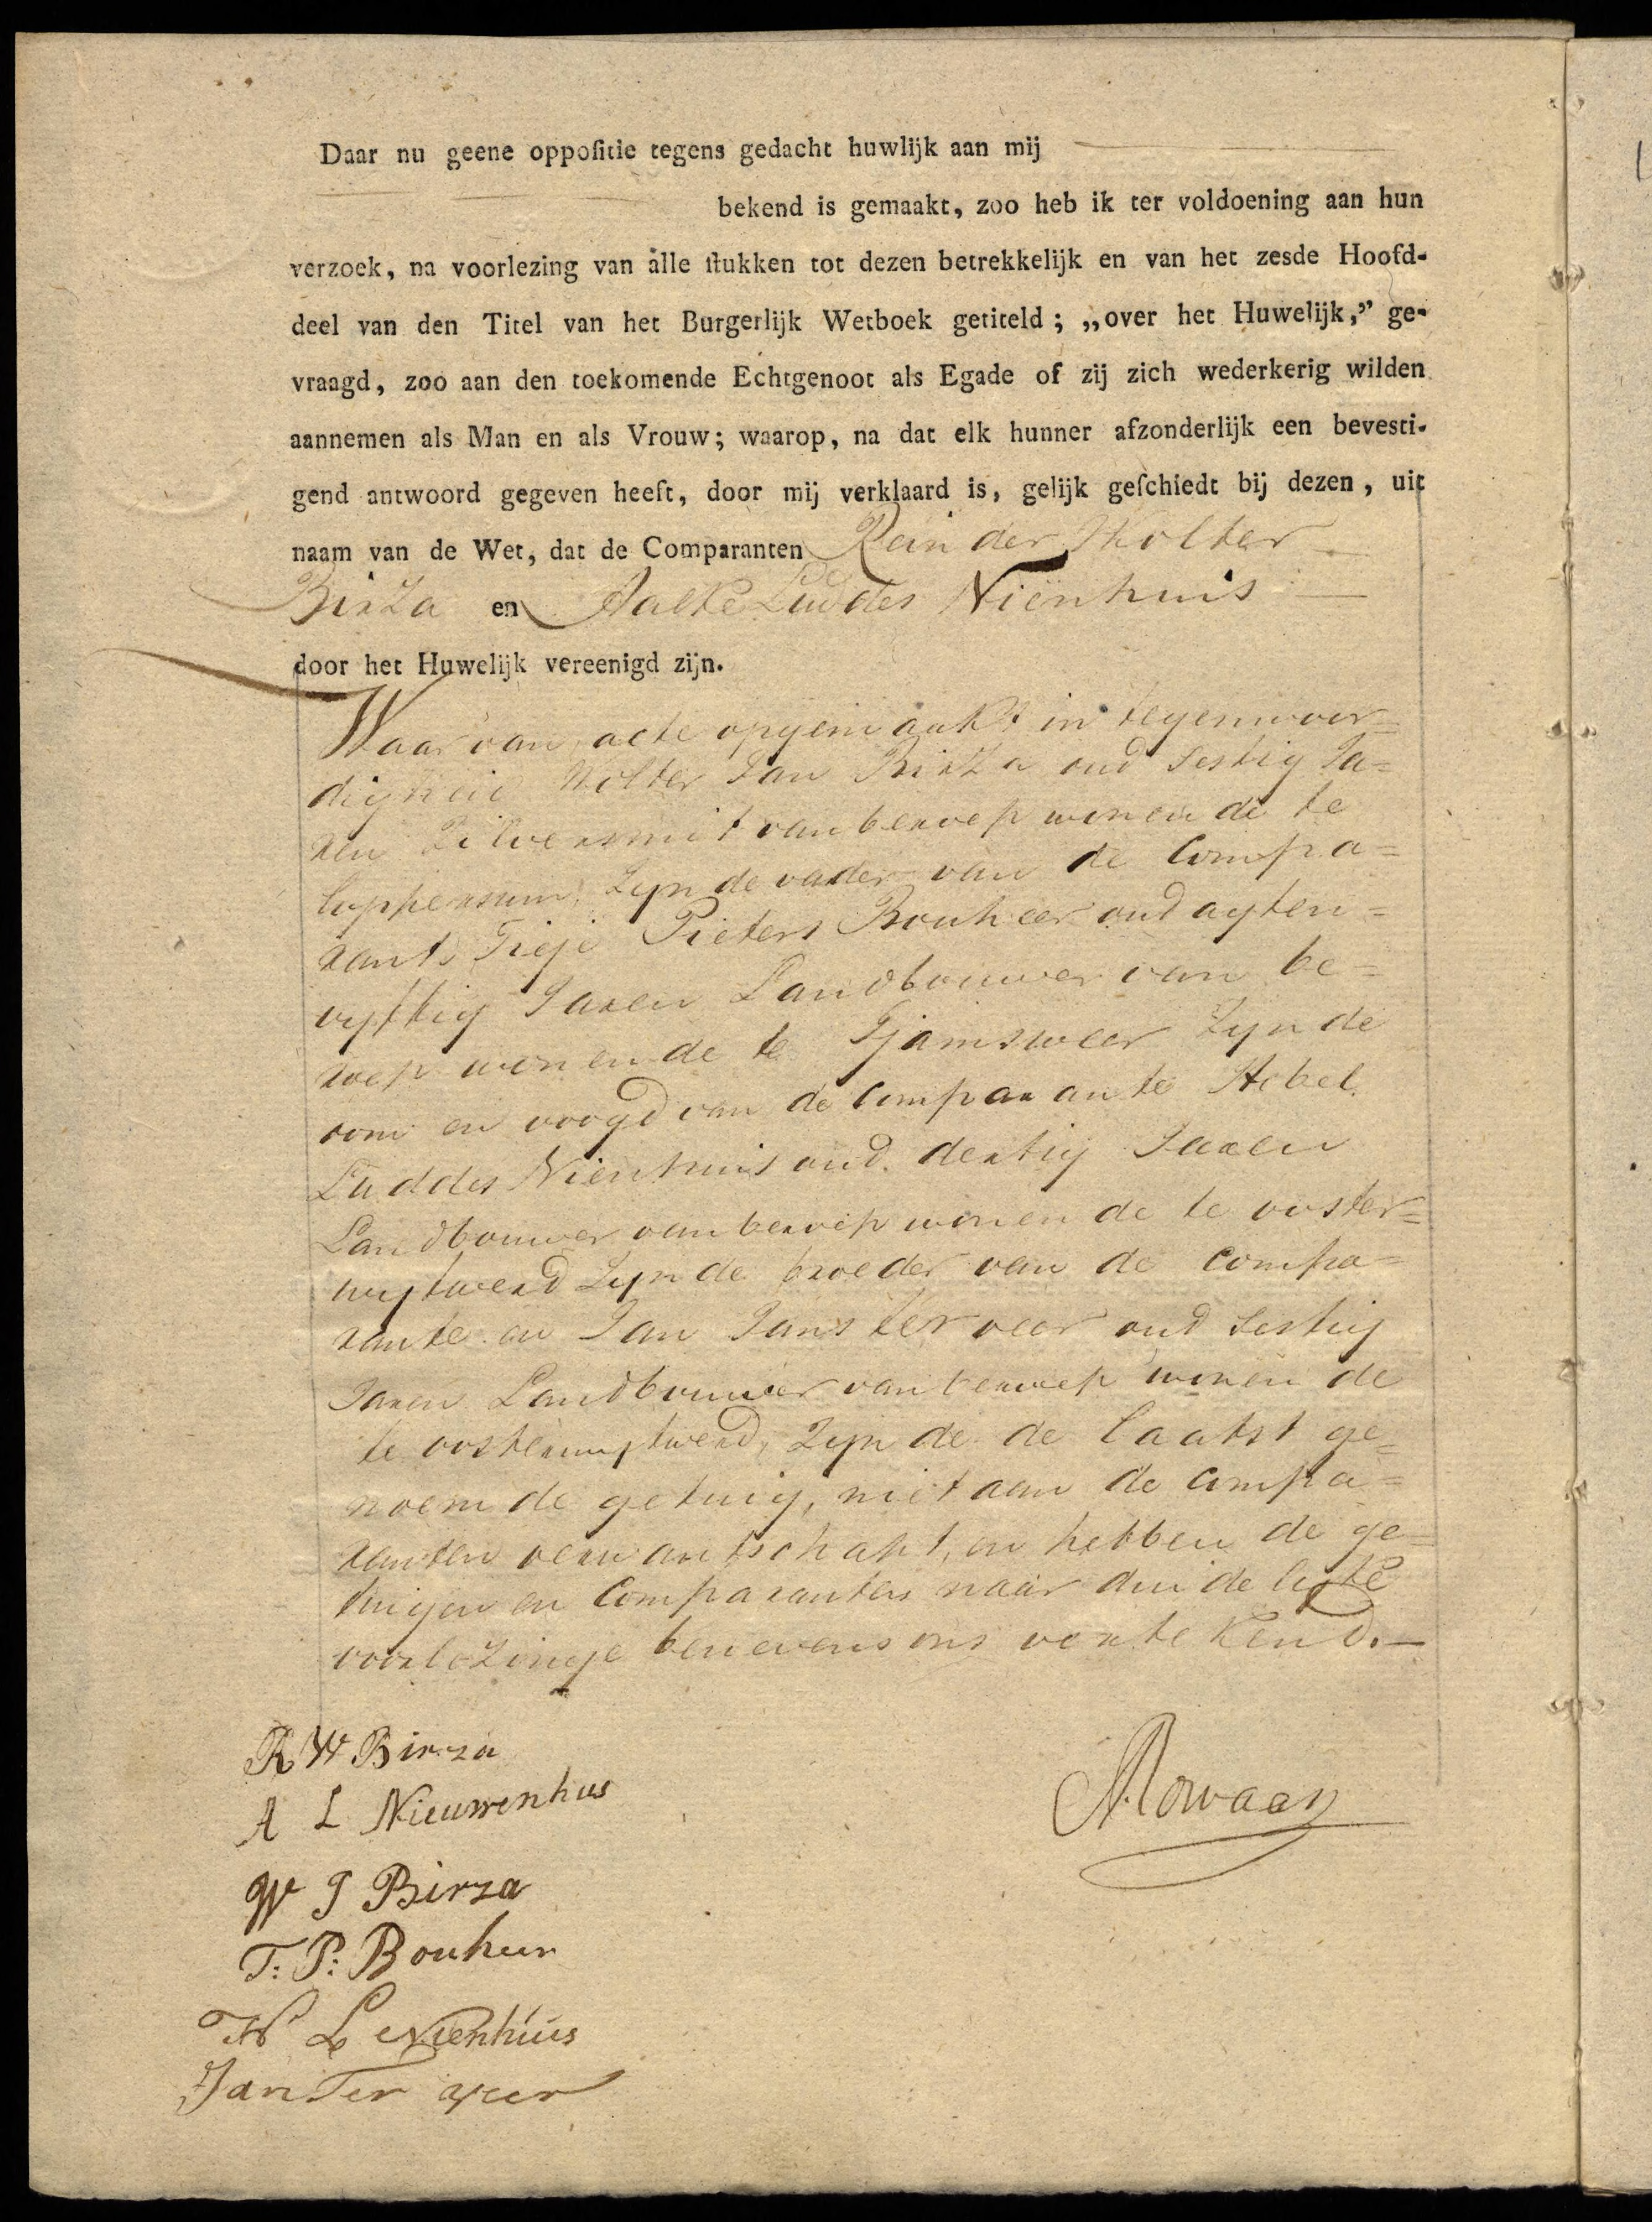 Daar nu geene oppositie tegens gedacht huwlijk aan mij
bekend is gemaakt, zoo heb ik ter voldoening aan hun
verzoek, na voorlezing van alle stukken tot dezen betrekkelijk en van het zesde Hoofd-
deel van den Titel van het Burgerlijk Wetboek getiteld; „over het Huwelijk,” ge-
vraagd, zoo aan den toekomende Echtgenoot als Egade of zij zich wederkerig wilden
aannemen als Man en als Vrouw; waarop, na dat elk hunner afzonderlijk een bevesti-
gend antwoord gegeven heeft, door mij verklaard is, gelijk geschiedt bij dezen, uit
naam van de Wet, dat de Comparanten Reinder Wolter
Birza en Aalke Luddes Nienhuis
door het Huwelijk vereenigd zijn.
Waar van acte opgemaakt in tegenwoor=
digheid Wolter Jan Birza oud sestig Ja=
ren Zilversmit van beroep wonende te
Loppersum, Zynde vader van de Compa=
rant, Tieje Pieters Bouheer oud agten=
vyftig Jaren Landbouwer van be=
roep wonende te Tjamsweer Zynde
oom en voogd van de Comparante Hebel
Luddes Nienhuis oud dertig Jaren
Landbouwer van beroep wonende te ooster=
wytwerd Zynde broeder van de Compa=
rante en Jan Jans ter veer oud sestig
Jaren Landbouwer van beroep wonende
te oosterwytwerd, Zynde de laatst ge=
noemde getuig, niet aan de Compa=
ranten verwantschapt, en hebben de ge=
tuigen en Comparanten naar duidelyke
voorlezinge benevens ons vertekend.—
R W Birza
A L Nieuwenhus
W J Birza
T: P: Bouheer
H L Nienhuis
Jan Ter veer